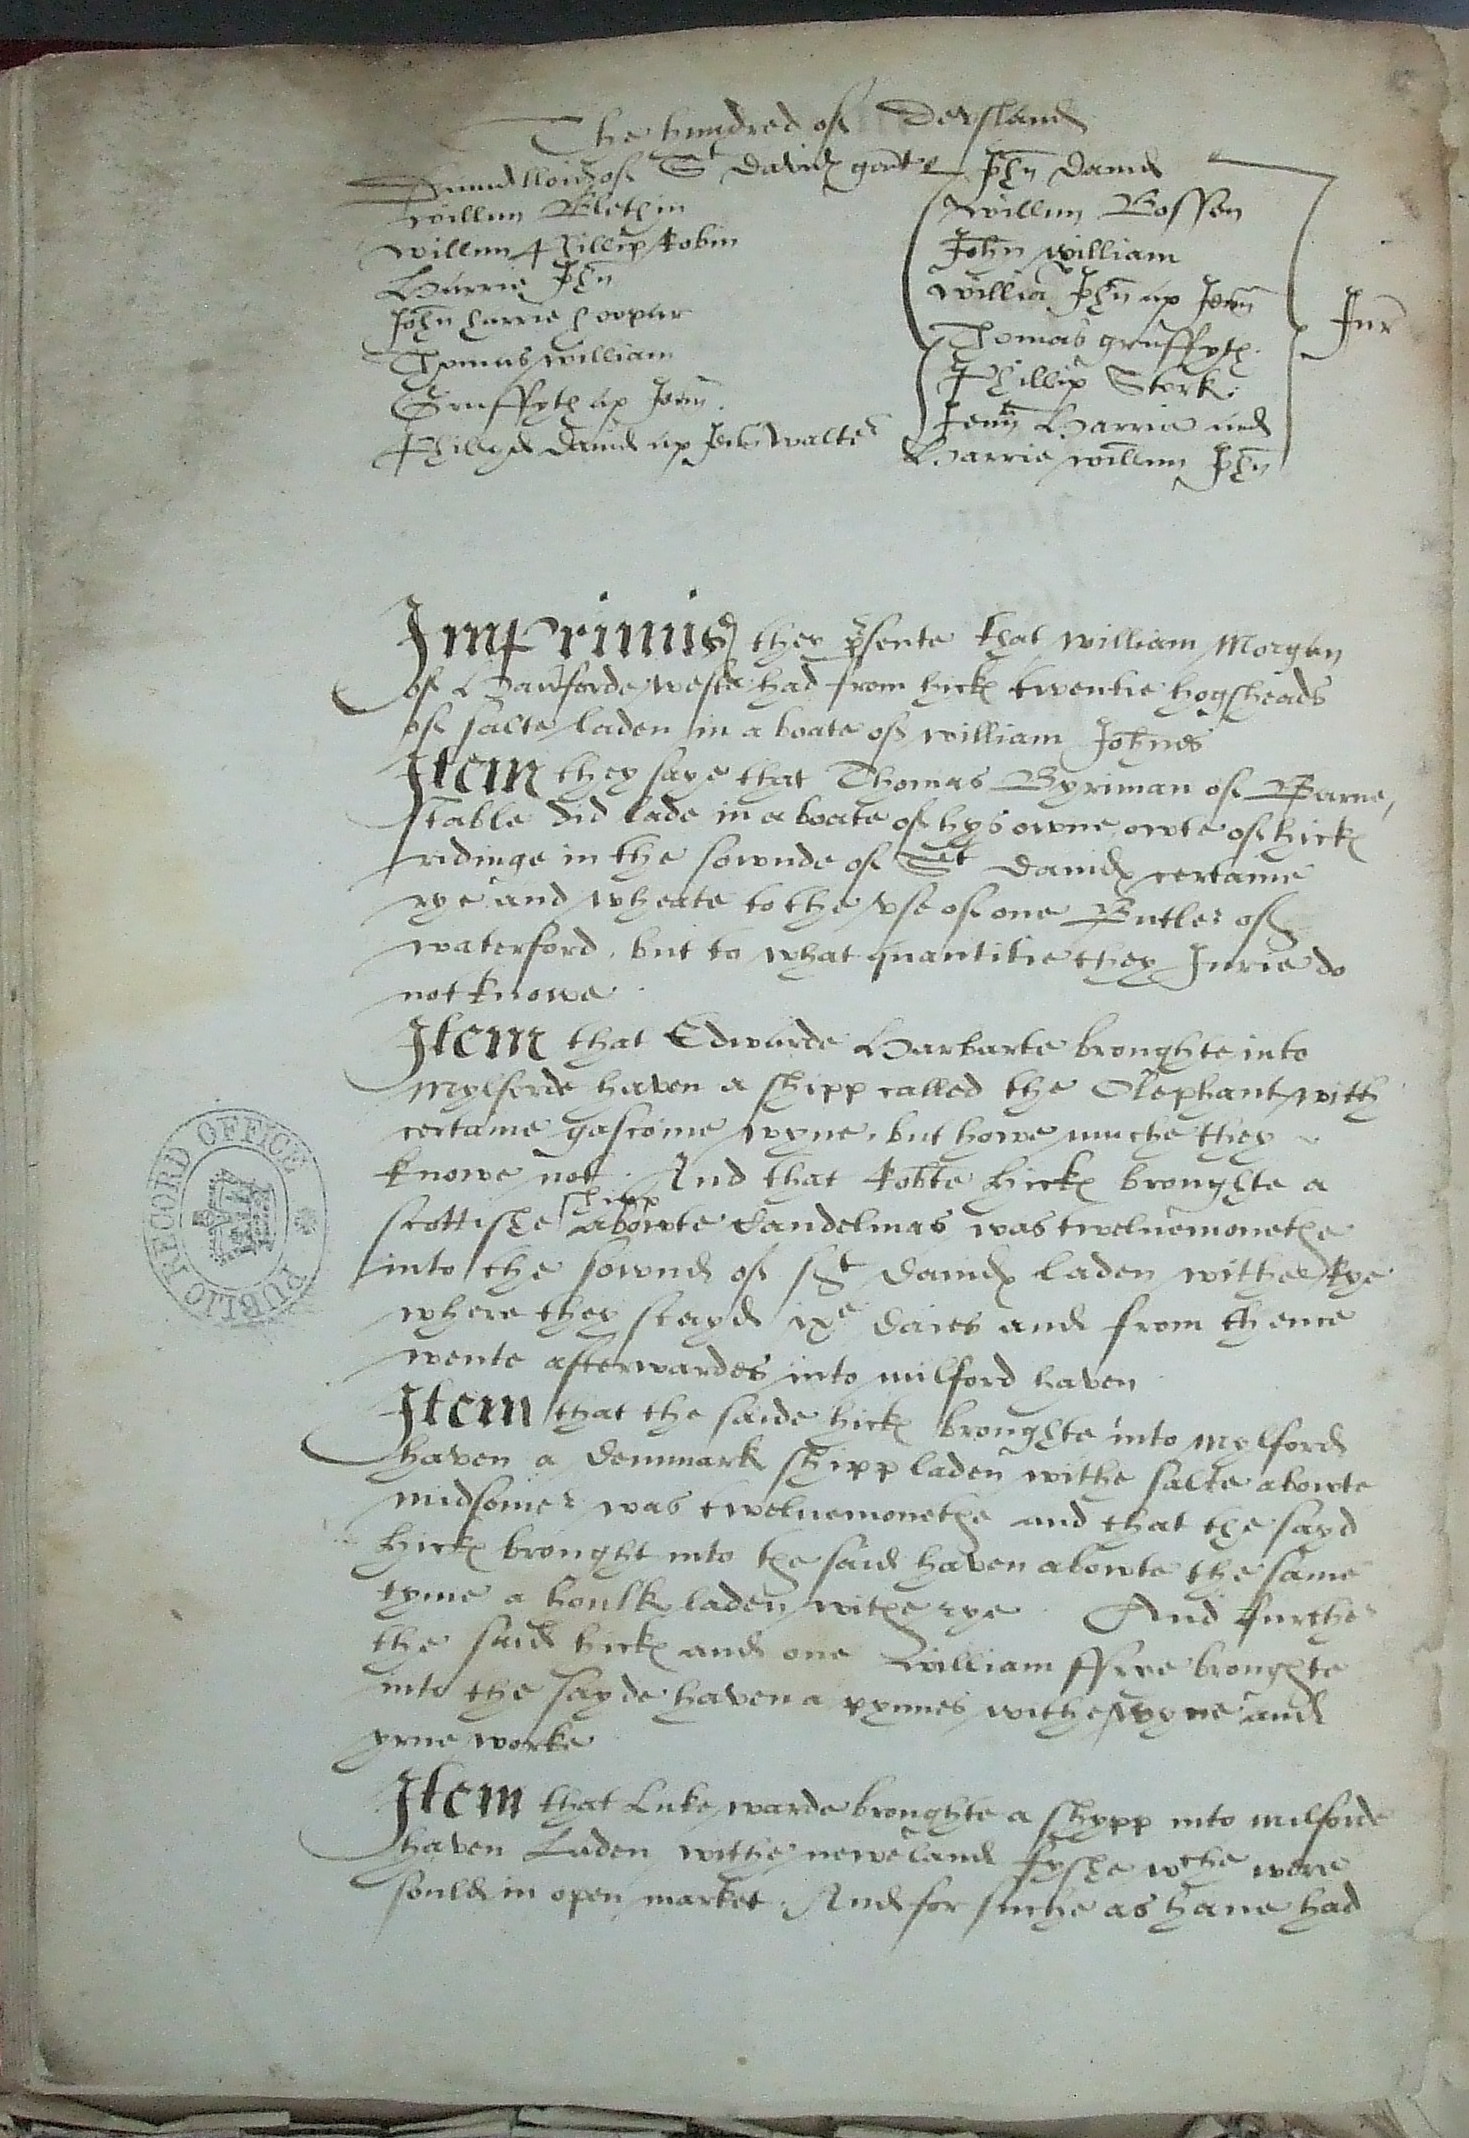 The hundred of Dewsland
lloid of St Davids gent
Willim Blethin
Willim Phillip Robin
Harrie Jhn
John harrie Coopar
Thomas William
Gruffyth ap Jevn
Phillip david ap Jevn Walter
Jhn David
Willim Bossen
John William
Willia Jhn ap Jevn
Thomas gruffyth
Phillip Stork
Jevn Harrie and
Harrie Willim Jhn
Jur
Imprimis they psente that William Morgan
of Harforde weste had from hicks twentie hogsheads
of salte laden in a boate of William Johnes
Item they saye that Thomas Byriman of Barne
stable did lade in a boate of hys owne owte of hicks
ridinge in the sownde of St Davids certaine
rye and wheate to the vse of one Butler of
waterford, but to what quantitie they Jurie do
not knowe
Item that Edwarde Harbarte broughte into
Mylforde haven a shipp called the Olephant with
certaine gascoine wyne, but howe muche they
knowe not. And that Robte Hicks broughte a
scottishe shipp abowte Candelmas was tweluemonethe
into the sownd of St Davids laden withe Rye
where they stayd ixe daies and from thence
wente afterwardes into milford haven
Item that the saide hicks broughte into mylford
haven a Denmark shipp laden withe salte abowte
midsomer was twelvemonethe and that the sayd
hicks brought into the said haven abowte the same
tyme a houlk laden withe rye And further
the said hicks and one William ffree broughte
into the sayde haven a pynnes withe wyne and
yrne worke
Item that Luke warde broughte a shypp into milforde
haven Laden withe neweland fyshe wche were
sould in open market. And for suche as have had
PUBLIC RECORD OFFICE